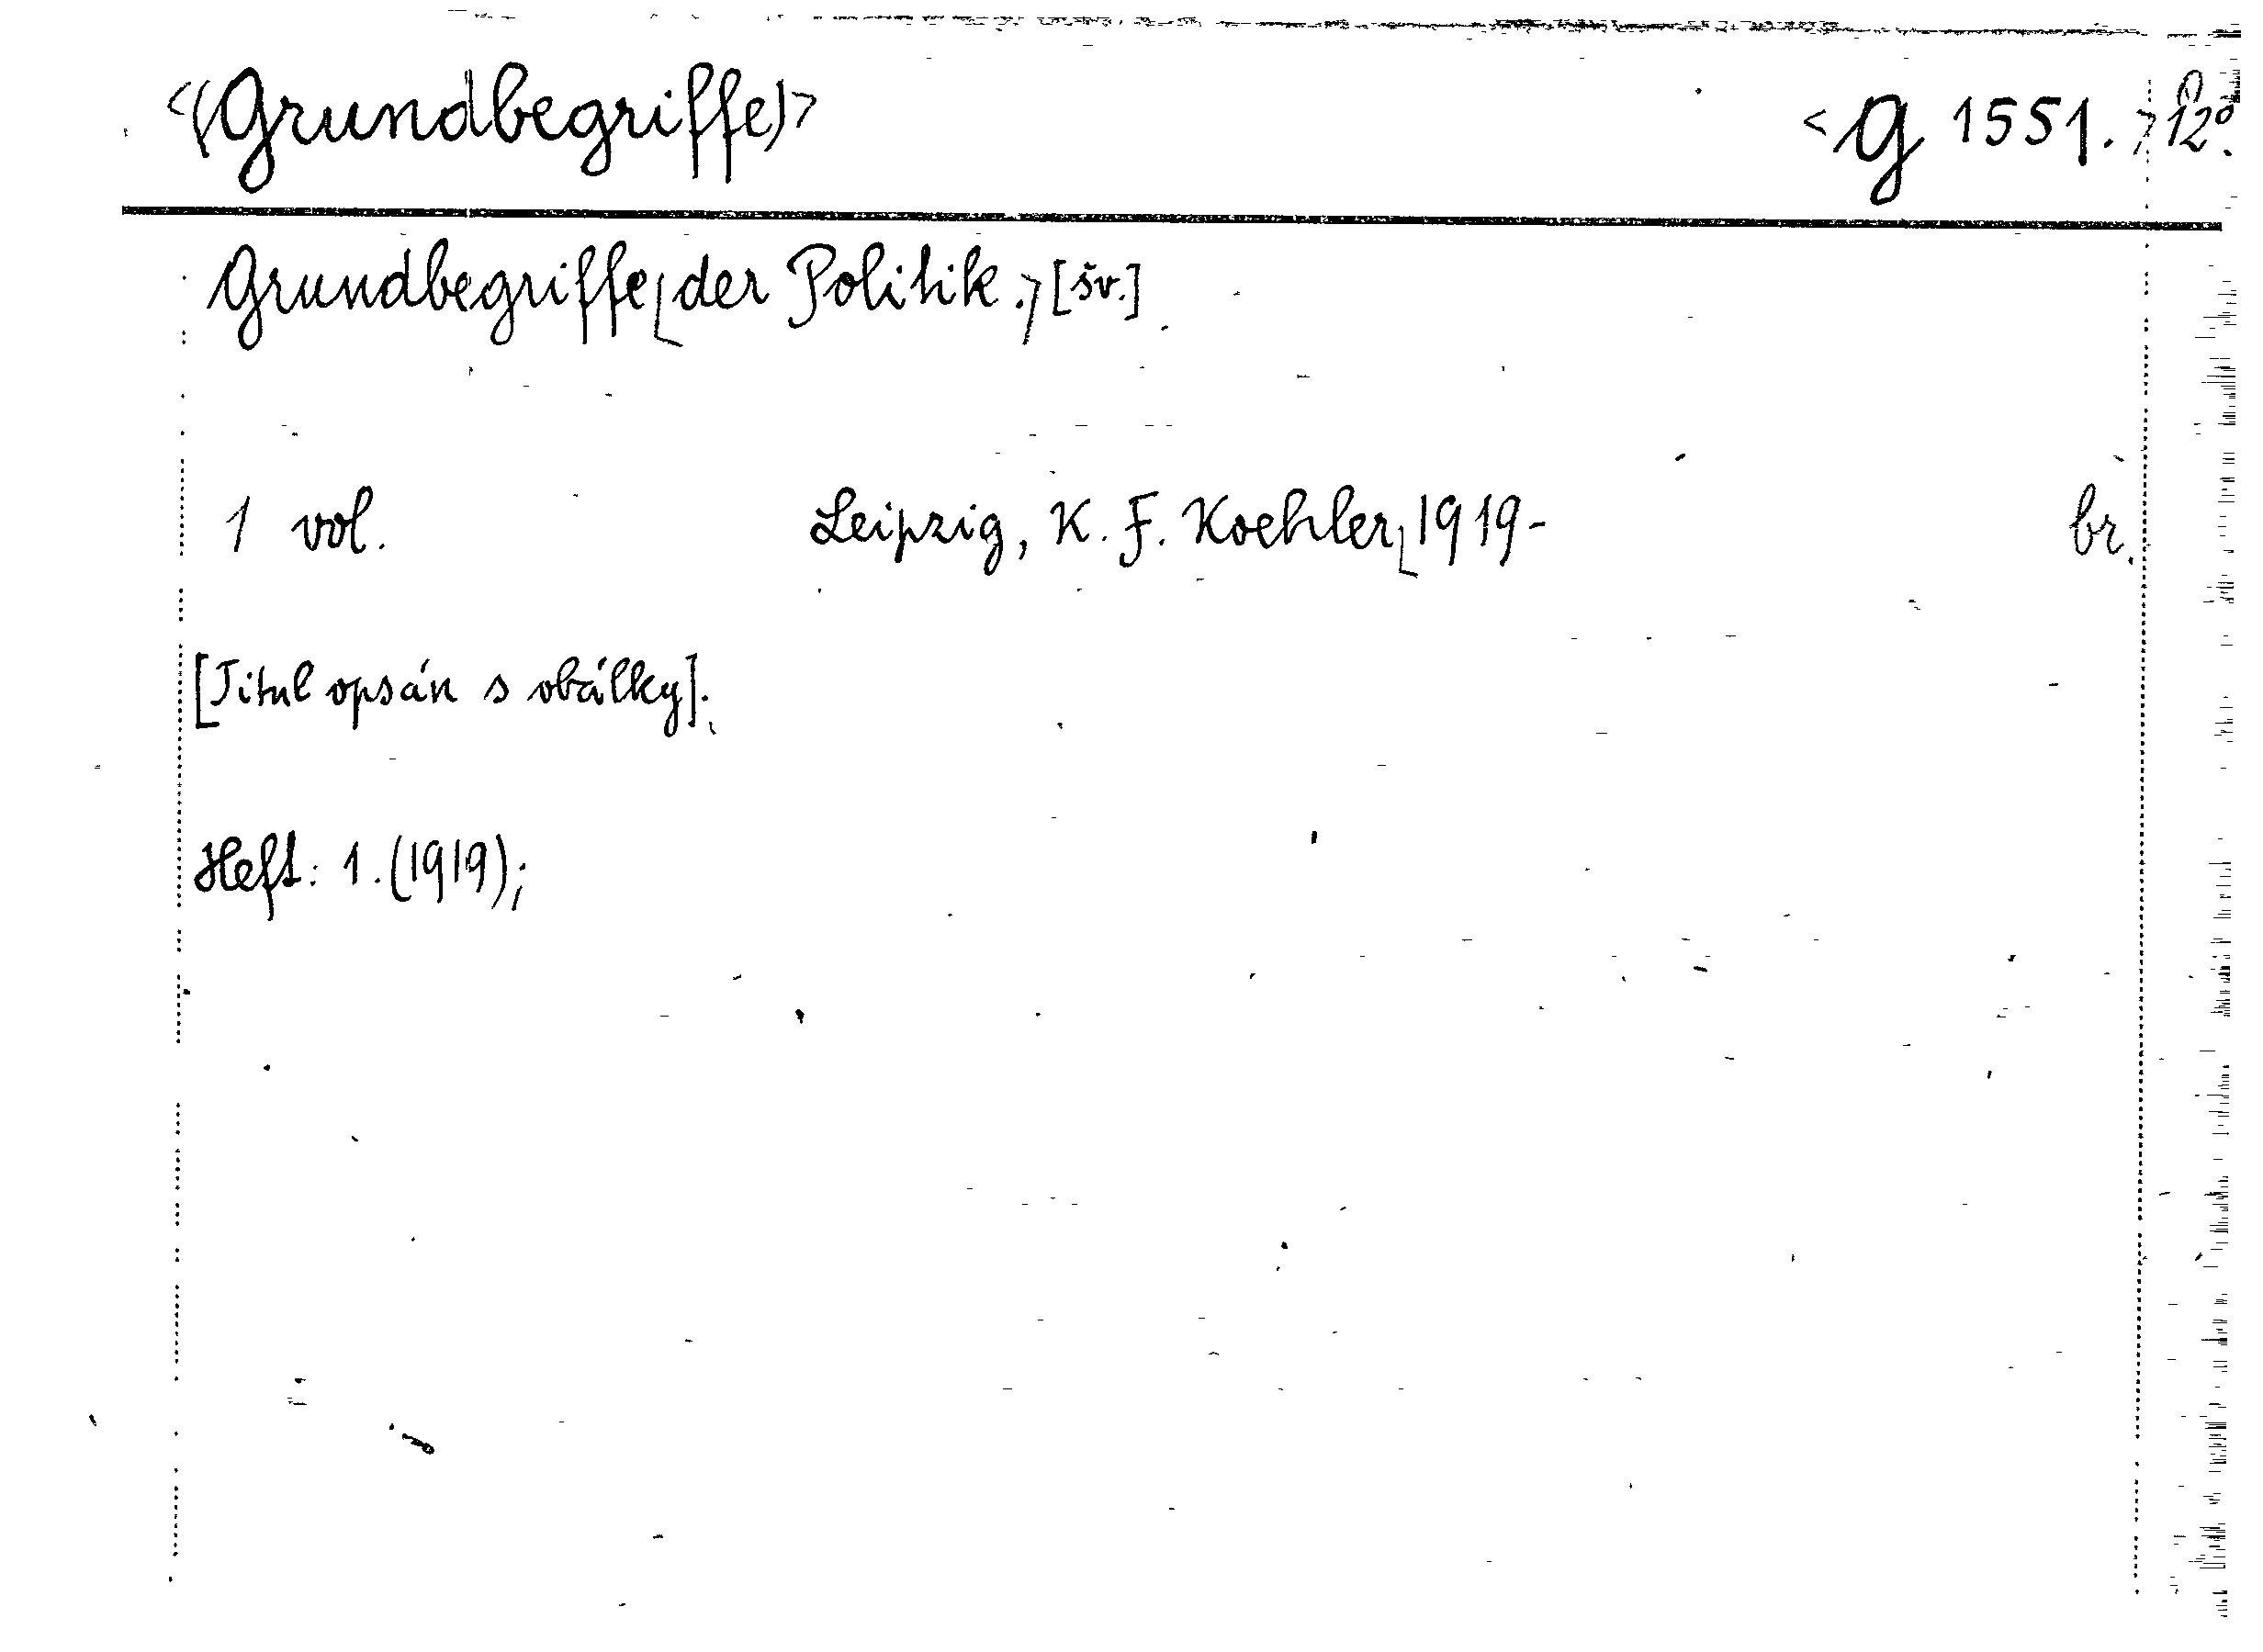 <(Grundbegriffe)> <G 1551.> 12°.
Grundbegriffe[der Politik.][šv.]
1 vol. Leipzig, K. F. Koehler[1919- br.
[Titul opsán s obálky].
Heft: 1.(1919);